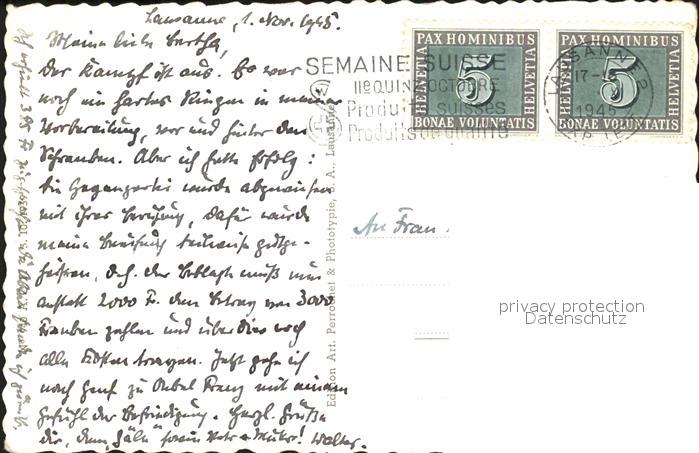 Lausanne, 1. Nov. 1945.
Meine liebe Bertha,
Der Kampf ist aus. Es war
noch ein hartes Ringen in meiner
Vorbereitung, vor und hinter den
Schranken. Aber ich hatte Erfolg:
Die Gegenpartei wurde abgewiesen
mit ihrer Berufung, dafür wurde
meine Berufung teilweise gutge-
heissen, d.h. der Beklagte muß nun
anstatt 2000 Fr. den Betrag von 3000
Franken zahlen und überdies noch
alle Kosten tragen. Jetzt gehe ich
nach Genf zu Onkel Franz mit einem
Gefühl der Befriedigung. Herzl. Grüße
dir, dem "Säli" sowie Vater & Mutter! Walter.
Edition Art. Perrochet & Phototypie, S. A., Lausanne
SEMAINE SUISSE
II e QUINZ. OCTOBRE
Produits suisses
Produits de qualité
PAX HOMINIBUS
HELVETIA
5
HELVETIA
BONAE VOLUNTATIS
PAX HOMINIBUS
HELVETIA
5
HELVETIA
BONAE VOLUNTATIS
LAUSANNE
17-
1945
An Frau
privacy protection
Datenschutz